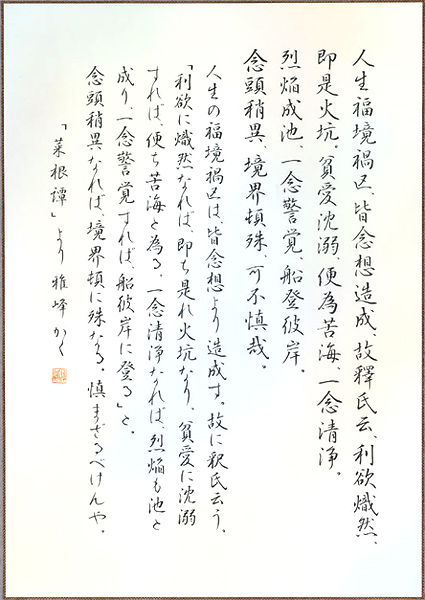 人生福境禍区、皆念想造成、故釋氏云、利欲熾然、
即是火坑。貧愛沈溺、便為苦海、一念清浄。
烈焔成池、一念警覚、船登彼岸。
念頭稍異、境界頓殊、可不慎哉。
人生の福境禍区は、皆念想より造成す。故に釈氏云う。
「利欲に熾然なれば、即ち是れ火坑なり、貧愛に沈溺
すれば、便ち苦海と為る、一念清浄なれば、烈焔も池と
成り、一念警覚すれば、船彼岸に登る」と。
念頭稍異なれば、境界頓に殊なる。慎まざるべけんや。
「菜根譚」より 雅峰かく